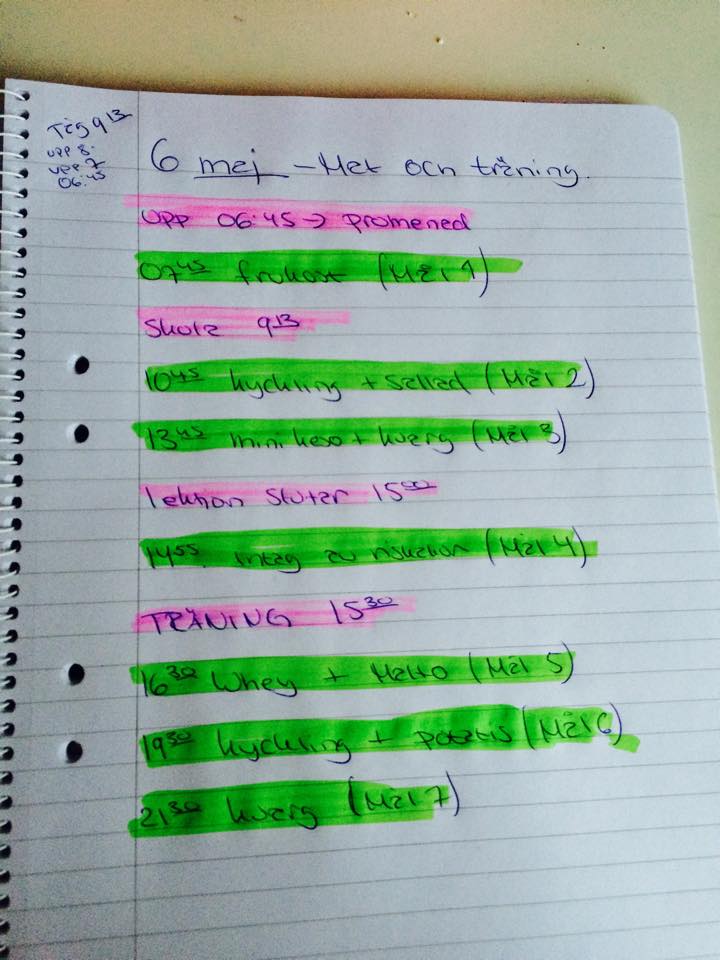 Tåg 9 13
upp 8.
upp 7
06:45
6 maj - Mat och träning.
upp 06:45 → promenad
07 45 frukost (Mål 1)
Skola 9 13
10 45 kyckling + sallad (Mål 2)
13 45 mini keso + kvarg (Mål 3)
lektion slutar 15 00
14 55 intag av riskakor (Mål 4)
TRÄNING 15 30
16 30 Whey + Malto (Mål 5)
19 30 kyckling + potatis (Mål 6)
21 30 kvarg (Mål 7)